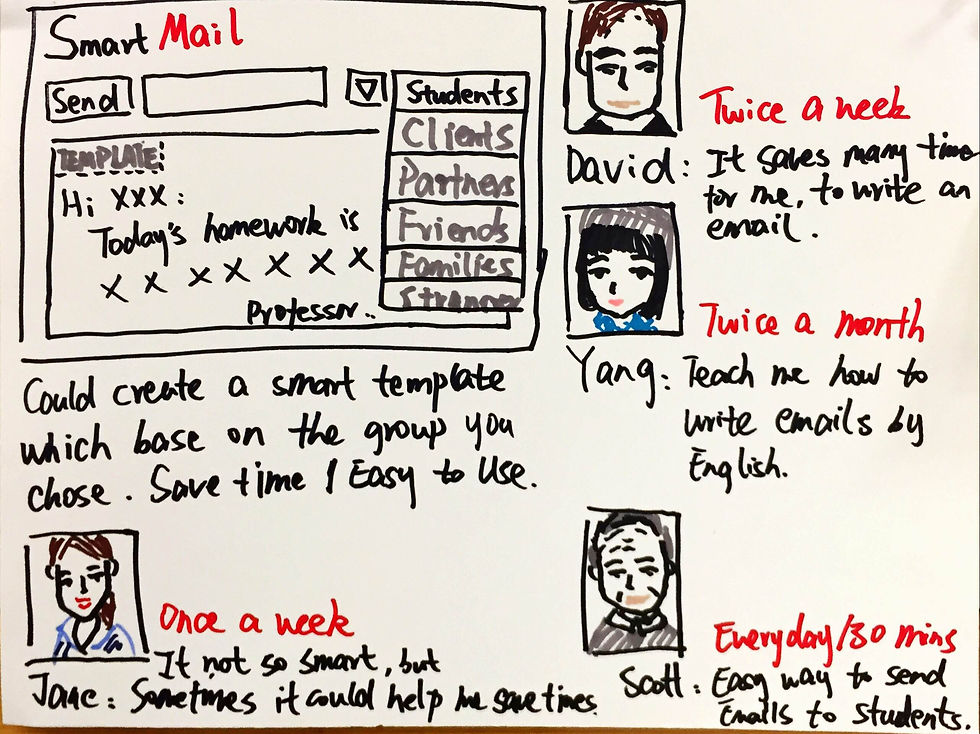 Smart Mail
Send
Students
Clients
Partners
Friends
Families
Stranger
TEMPLATE:
Hi XXX:
Today's homework is
X X X X X X X
Professor..
Could create a smart template
which base on the group you
chose. Save time / Easy to Use.
Twice a week
David: It saves many time
for me, to write an
email.
Twice a month
Yang: Teach me how to
write emails by
English.
Once a week
It not so smart, but
Jane: Sometimes it could help me save times.
Everyday/30 mins
Scott: Easy way to send
Emails to students.